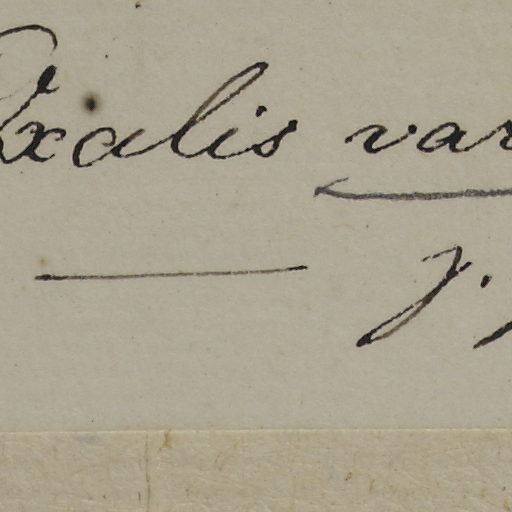 Oxalis var
J.